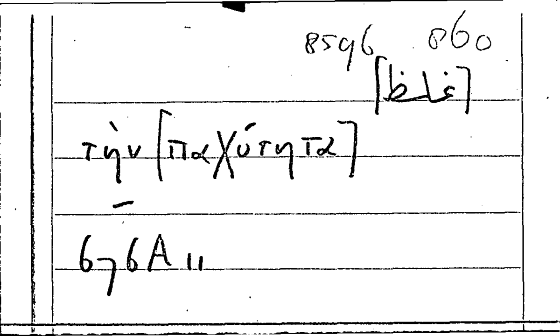 8596 860
[غلظ]
τὴν [παχύτητα]
–
676A 11